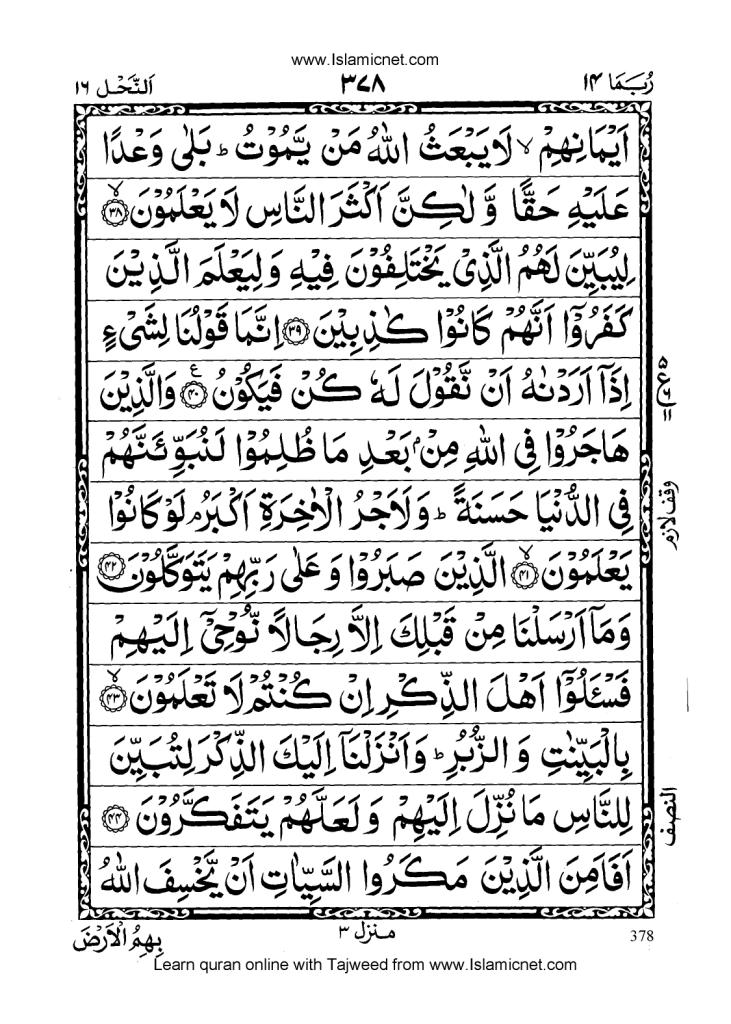 www.Islamicnet.com
رُبَمَا ١۴ ٣٧٨ اَلنَّحْل ١٦
اَيْمَانِهِمْ ۙ لَا يَبْعَثُ اللّٰهُ مَنْ يَّمُوْتُ ؕ بَلٰى وَعْدًا
عَلَيْهِ حَقًّا وَّ لٰكِنَّ اَكْثَرَ النَّاسِ لَا يَعْلَمُوْنَ ۙ ﴿۳۸﴾
لِيُبَيِّنَ لَهُمُ الَّذِيْ يَخْتَلِفُوْنَ فِيْهِ وَ لِيَعْلَمَ الَّذِيْنَ
كَفَرُوْۤا اَنَّهُمْ كَانُوْا كٰذِبِيْنَ ﴿۳۹﴾ اِنَّمَا قَوْلُنَا لِشَيْءٍ
اِذَاۤ اَرَدْنٰهُ اَنْ نَّقُوْلَ لَهٗ كُنْ فَيَكُوْنُ ﴿۴۰﴾ ع وَالَّذِيْنَ
هَاجَرُوْا فِي اللّٰهِ مِنْۢ بَعْدِ مَا ظُلِمُوْا لَنُبَوِّئَنَّهُمْ
فِي الدُّنْيَا حَسَنَةً ؕ وَ لَاَجْرُ الْاٰخِرَةِ اَكْبَرُ ۘ لَوْ كَانُوْا
يَعْلَمُوْنَ ۙ ﴿۴۱﴾ الَّذِيْنَ صَبَرُوْا وَ عَلٰى رَبِّهِمْ يَتَوَكَّلُوْنَ ﴿۴۲﴾
وَمَاۤ اَرْسَلْنَا مِنْ قَبْلِكَ اِلَّا رِجَالًا نُّوْحِيْۤ اِلَيْهِمْ
فَسْـَٔلُوْۤا اَهْلَ الذِّكْرِ اِنْ كُنْتُمْ لَا تَعْلَمُوْنَ ۙ ﴿۴۳﴾
بِالْبَيِّنٰتِ وَ الزُّبُرِ ؕ وَ اَنْزَلْنَاۤ اِلَيْكَ الذِّكْرَ لِتُبَيِّنَ
لِلنَّاسِ مَا نُزِّلَ اِلَيْهِمْ وَ لَعَلَّهُمْ يَتَفَكَّرُوْنَ ﴿۴۴﴾
اَفَاَمِنَ الَّذِيْنَ مَكَرُوا السَّيِّاٰتِ اَنْ يَّخْسِفَ اللّٰهُ
۵ ع ٦ ١١
وقف لازم
النصف
378 منزل ٣ بِهِمُ الْاَرْضَ
Learn quran online with Tajweed from www.Islamicnet.com